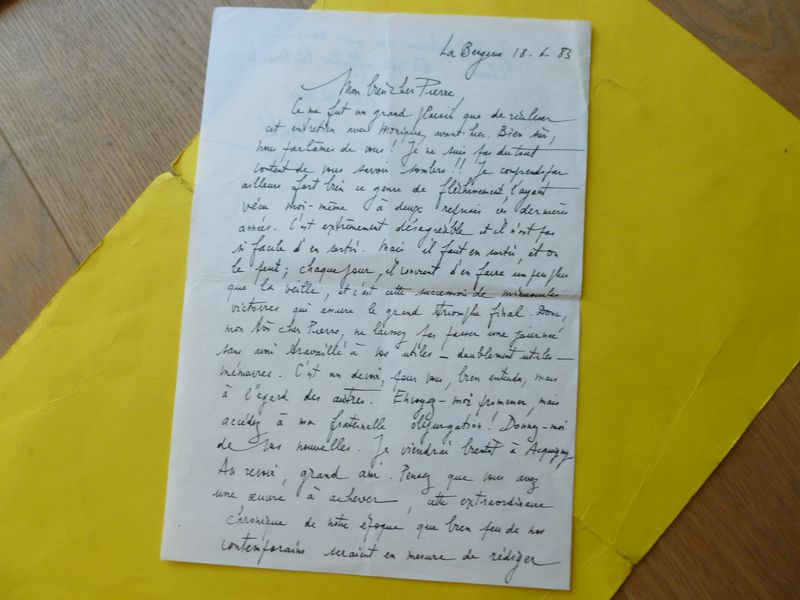 La Bergerie 18-6-83
Mon bien cher Pierre,
Ce me fut un grand plaisir que de réaliser
cet entretien avec Monique, avant-hier. Bien sûr,
nous parlâmes de vous ! Je ne suis pas du tout
content de vous savoir sombre !! Je comprends par
ailleurs fort bien ce genre de fléchissement, l'ayant
vécu moi-même à deux reprises ces dernières
années. C'est extrêmement désagréable et il n'est pas
si facile d'en sortir. Mais il faut en sortir, et on
le peut ; chaque jour, il convient d'en faire un peu plus
que la veille, et c'est cette succession de minuscules
victoires qui assure le grand triomphe final. Donc,
mon très cher Pierre, ne laissez pas passer une journée
sans avoir travaillé à vos utiles – doublement utiles –
mémoires. C'est un devoir, pour vous, bien entendu, mais
à l'égard des autres. Envoyez-moi promener, mais
accédez à ma fraternelle objurgation ! Donnez-moi
de vos nouvelles. Je viendrai bientôt à Acquigny.
Au revoir, grand ami. Pensez que vous avez
une œuvre à achever, cette extraordinaire
chronique de notre époque que bien peu de nos
contemporains seraient en mesure de rédiger